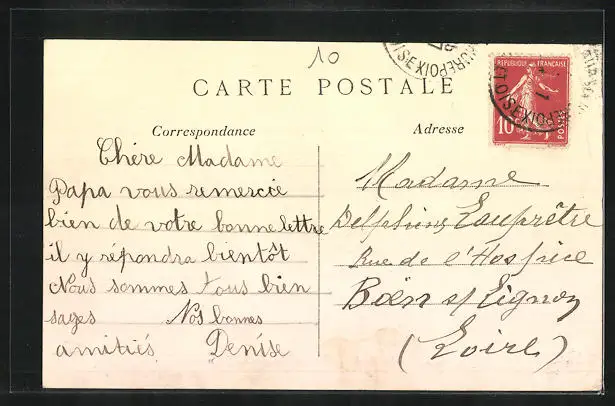 10
CARTE POSTALE
REPUBLIQUE FRANÇAISE
10
POSTES
Correspondance
Adresse
Chère Madame
Papa vous remercie
bien de votre bonne lettre
il y répondra bientôt
Nous sommes tous bien
sages Nos bonnes
amitiés Denise
Madame
Delphine Lauprêtre
Rue de l'Hospice
Boën s/ Lignon
(Loire)